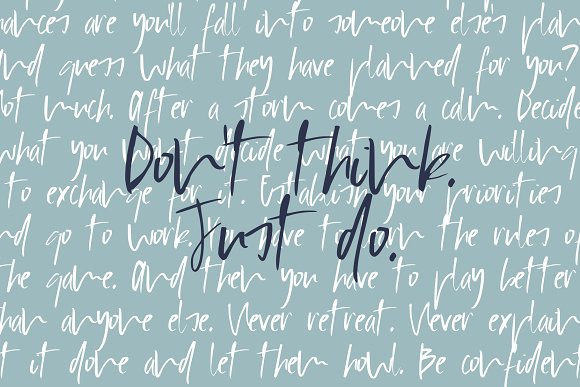 ances are you'll fall into someone else's plan
nd guess what they have planned for you?
ot much. After a storm comes a calm. Decide
what you want, decide what you are willing
to exchange for it. Establish your priorities
nd go to work. You have to learn the rules of
the game. And then you have to play better
han anyone else. Never retreat. Never explain
t it done and let them howl. Be confident
Don't think.
Just do.